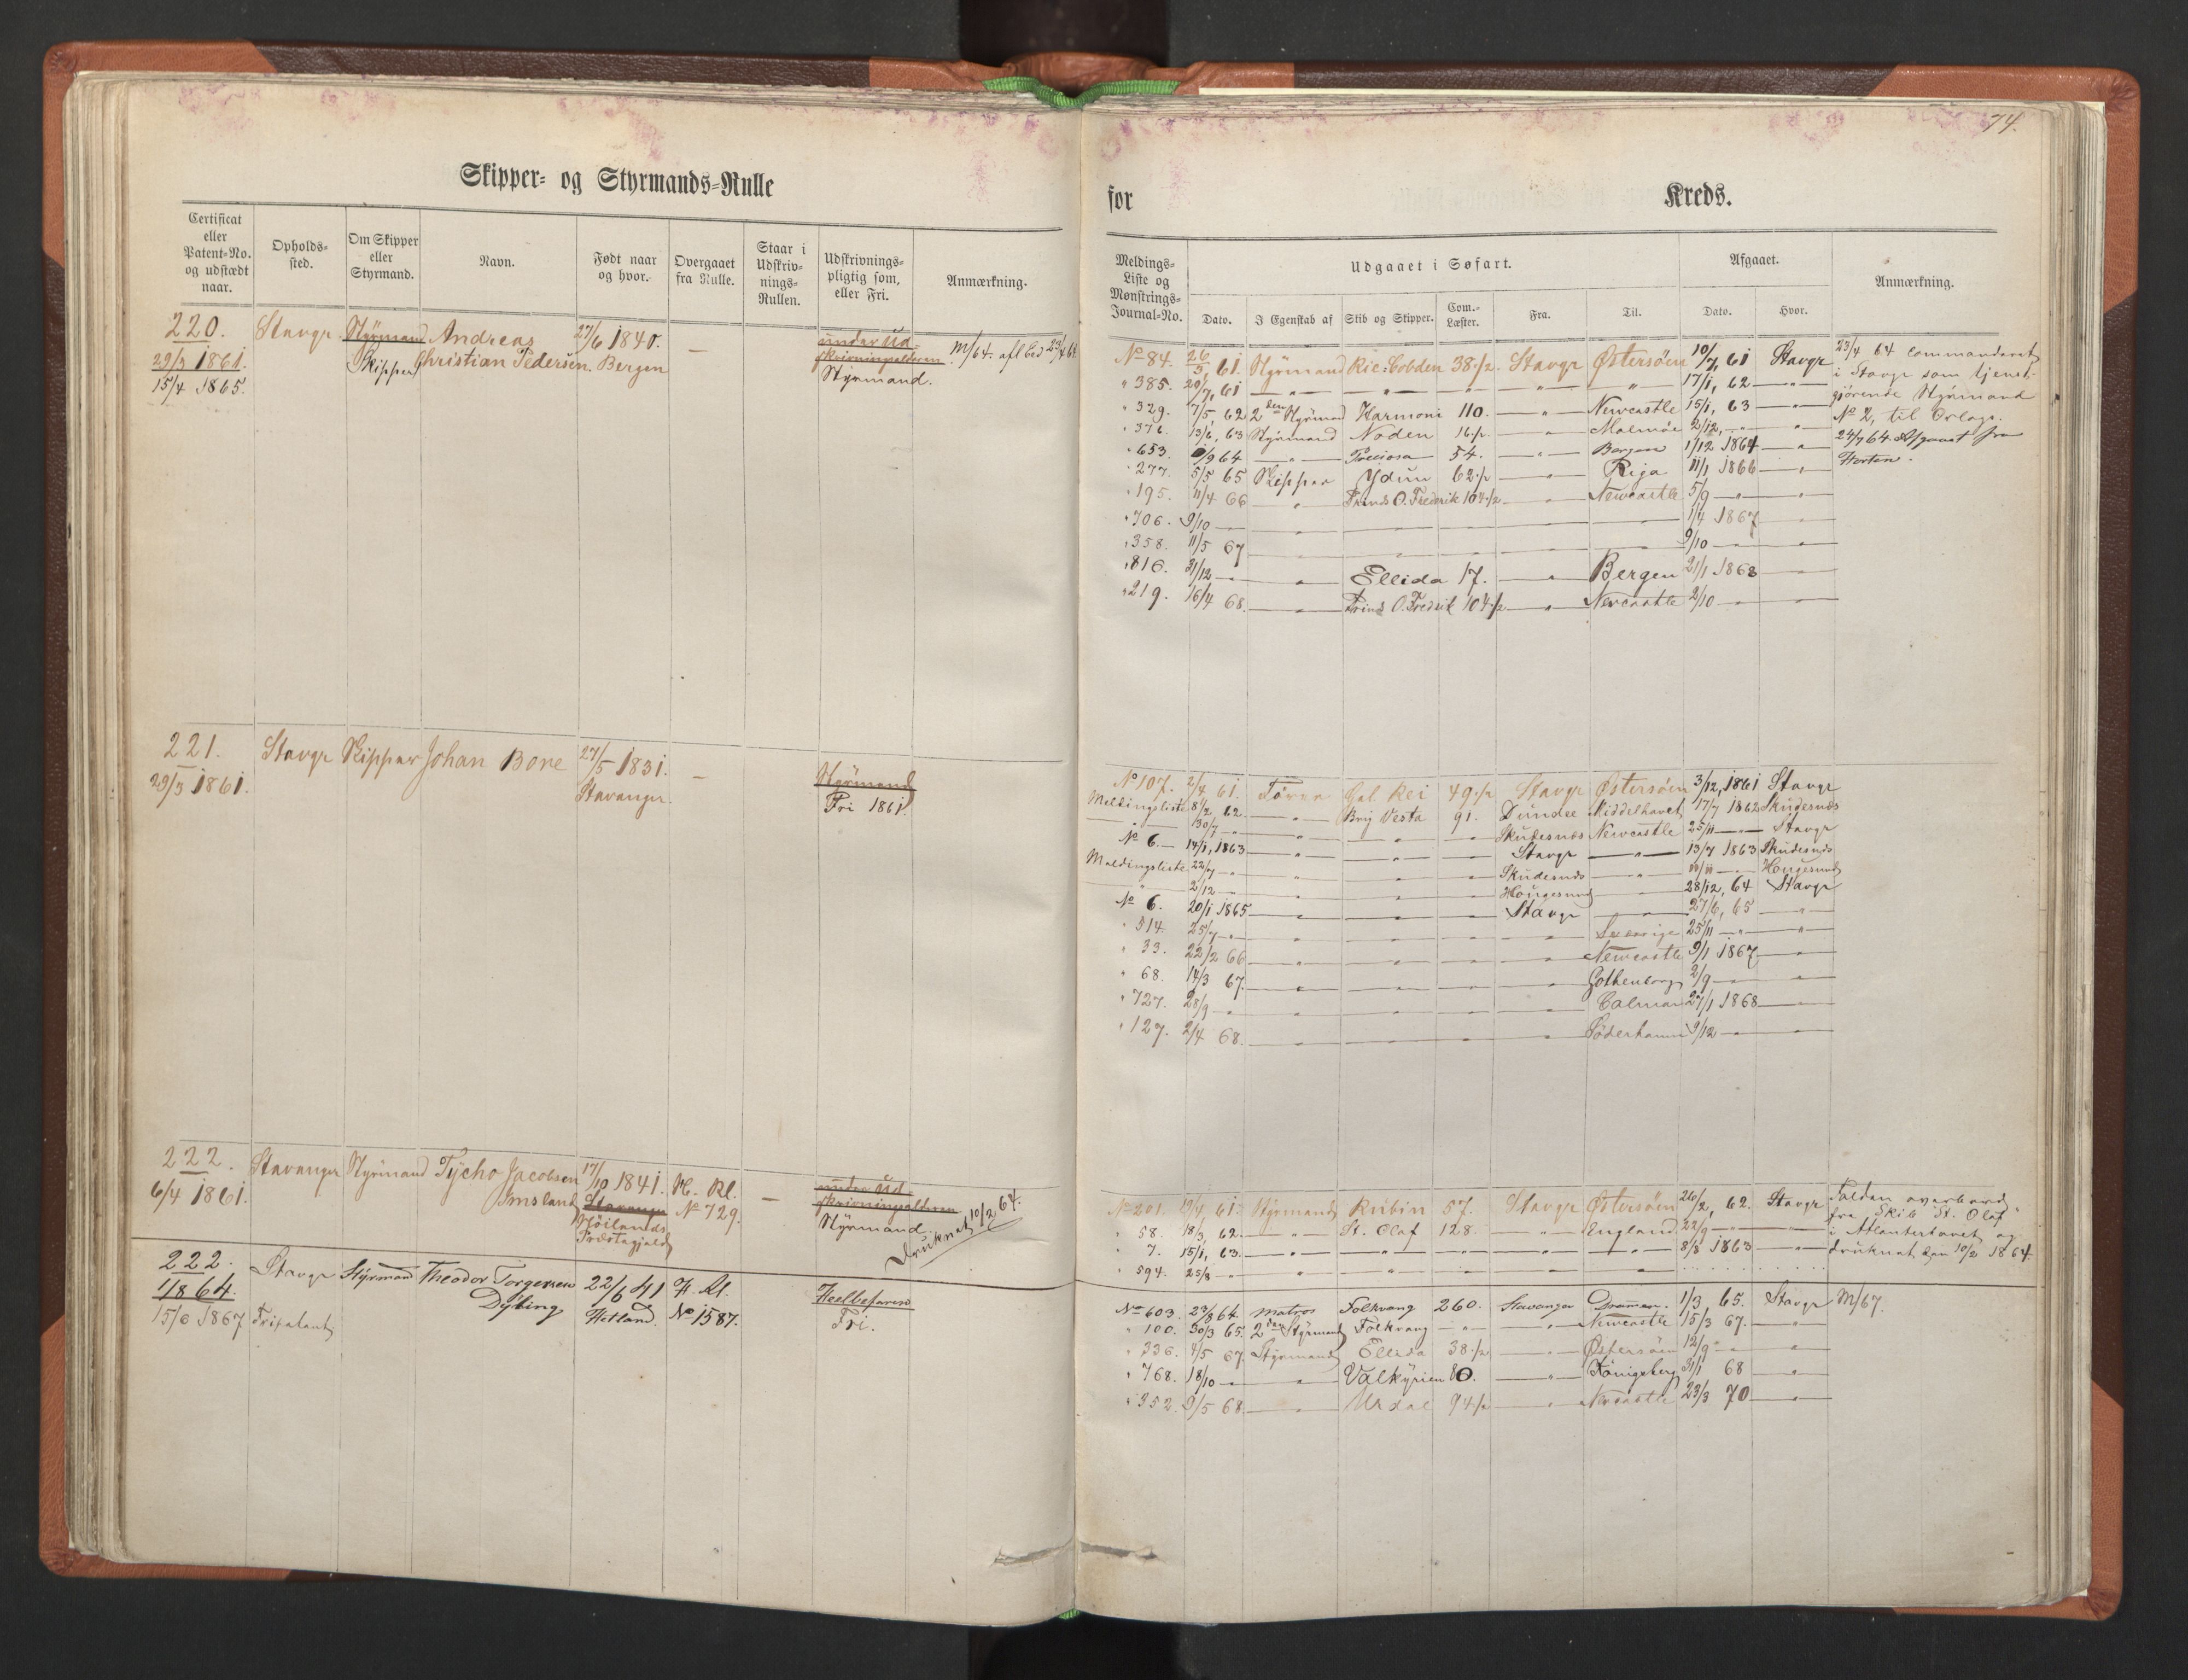 74.
Skipper- og Styrmands-Rulle
for Kreds.
Certificat eller Patent-No. og udstædt naar.
Opholds-sted.
Om Skipper eller Styrmand.
Navn.
Født naar og hvor.
Overgaaet fra Rulle.
Staar i Udskriv-nings-Rullen.
Udskrivnings-pligtig som, eller Fri.
Anmærkning.
Meldings-Liste og Mønstrings-Journal-No.
Udgaaet i Søfart.
Dato. I Egenskab af Skib og Skipper. Com.-Læster. Fra. Til.
Afgaaet.
Dato. Hvor.
Anmærkning.
220. Stavgr Styrmand Andreas 27/6 1840. — under Ud-
29/3 1861. Skipper Christian Pedersen. Bergen skrivningsalderen M/64.
15/4 1865. Styrmand.
No 84. 26/3, 61. Styrmand Ric: Cobden 38 1/2. Stavgr Østersøen 10/7, 61 Stavgr 23/4 64 commanderet
" 385. 20/7, 61 — " — — " — — " — — " — " 17/1, 62 — " — i Stavgr som tjenst-
" 329. 7/5, 62 2den Styrmand Harmoni 110. — " — Newcastle 15/1, 63 — " — gjørende Styrmand
" 376. 13/6, 63 Styrmand Noden 16 1/2. — " — Malmøe 2/12, — " — " No 2, til Orlogs.
" 653. 1/9 64 — " — Preciosa 54. — " — Bergen 1/12 1864 — " 24/7 64 Afgaaet fra
" 277. 5/5 65 Skipper Ydun 62 1/2 — " — Riga 11/1 1866 — " Horten.
" 195. 11/4 66 — " — Prinds O. Frederik 104 1/2 — " — Newcastle 5/9 — " — "
" 706. 9/10 — — " — — — — 1/4 1867 — "
" 358. 11/5 67 — " — — " — — " — — " — 9/10 — " — "
" 816. 31/12 — " — " — Ellida 17. — " Bergen 21/1 1868 — "
" 219. 16/4 68. — " — Prinds O. Fredrik 104 1/2 — " — Newcastle 2/10 — " — "
221. Stavgr Skipper Johan Bore 27/5 1831. — Styrmand
29/3 1861. Stavanger. Fri 1861.
No 107. 2/4 61. Fører Gal. Rei 49 1/2 Stavgr Østersøen 3/12, 1861 Stavgr
Meldingsliste 8/2, 62. — " — Brig Vesta 91. Dundee Middelhavet 17/7 1862 Skudesnæs
— " — 30/7 — " — " — — " — — " — Skudesnæs Newcastle 25/11 — " — Stavgr
No 6. — 14/1, 1863 — " — — " — — " — Stavgr — " — 13/7 1863 Skudesnæs
Meldingsliste 22/7 — " — " — — " — — " — Skudesnæs — " — 11/11 — " — Hougesund
" 2/12 — — " — — " — — " — Hougesund — 28/12, 64 Stavgr
No 6. 20/1 1865 — " — — " — — " — Stavgr — " — 27/6, 65 — " —
" 514. 25/7 — " — " — — " — — " — " Sverrige 25/11 — " — "
" 33. 22/2 66 — " — — " — — " — " Newcastle 9/1 1867 — "
" 68. 14/3 67. — " — — " — — " — " Gothenborg 2/9 — " — "
" 727. 28/9 — " — " — — " — — " — " Calmar 27/1 1868 — "
" 127. 2/4 68. — " — — " — — " — " Söderhamn 9/12 — " — "
222. Stavanger Styrmand Tycho Jacobsen 17/10 1841. H. Rl. — under Ud-
6/4 1861. Imsland Stavanger No 729. skrivningsalderen
Høilands Præstegjæld Styrmand. Druknet 10/2 64.
No 201. 19/4 61. Styrmand Rubin 57. Stavgr Østersøen 26/2, 62. Stavgr Falden overbord
" 58. 18/3, 62. — " — St. Olaf 128. — " — England 22/9 — " — " fra Skib "St. Olaf"
" 7. 15/1, 63. — " — — " — — " — — " — — " — 8/8 1863 — " i Atlanterhavet og
" 594. 25/8 — " — " — " druknet den 10/2 1864.
222. Stavgr Styrmand Theodor Torgersen 22/6 41 H. Rl. Heelbefaren
1/8 64. Dybing Hetland. No 1587. Fri.
15/6 1867 Fripatent
No 603. 23/8 64. Matros Folkvang 260. Stavanger Drammen. 1/3, 65. Stavgr M/67.
" 100. 30/3 65. 2den Styrmand Folkvang — " — — " — Newcastle 15/3 67. — "
" 336. 4/5 67. Styrmand Ellida 38 1/2 — " — Østersøen 12/9 — " — "
" 768. 18/10 — " — " — Valkyrien 80. — " — Königsberg 31/1 68 — "
" 352. 9/5 68. — " — Urdal 94 1/2 — " — Newcastle 23/3 70 — "